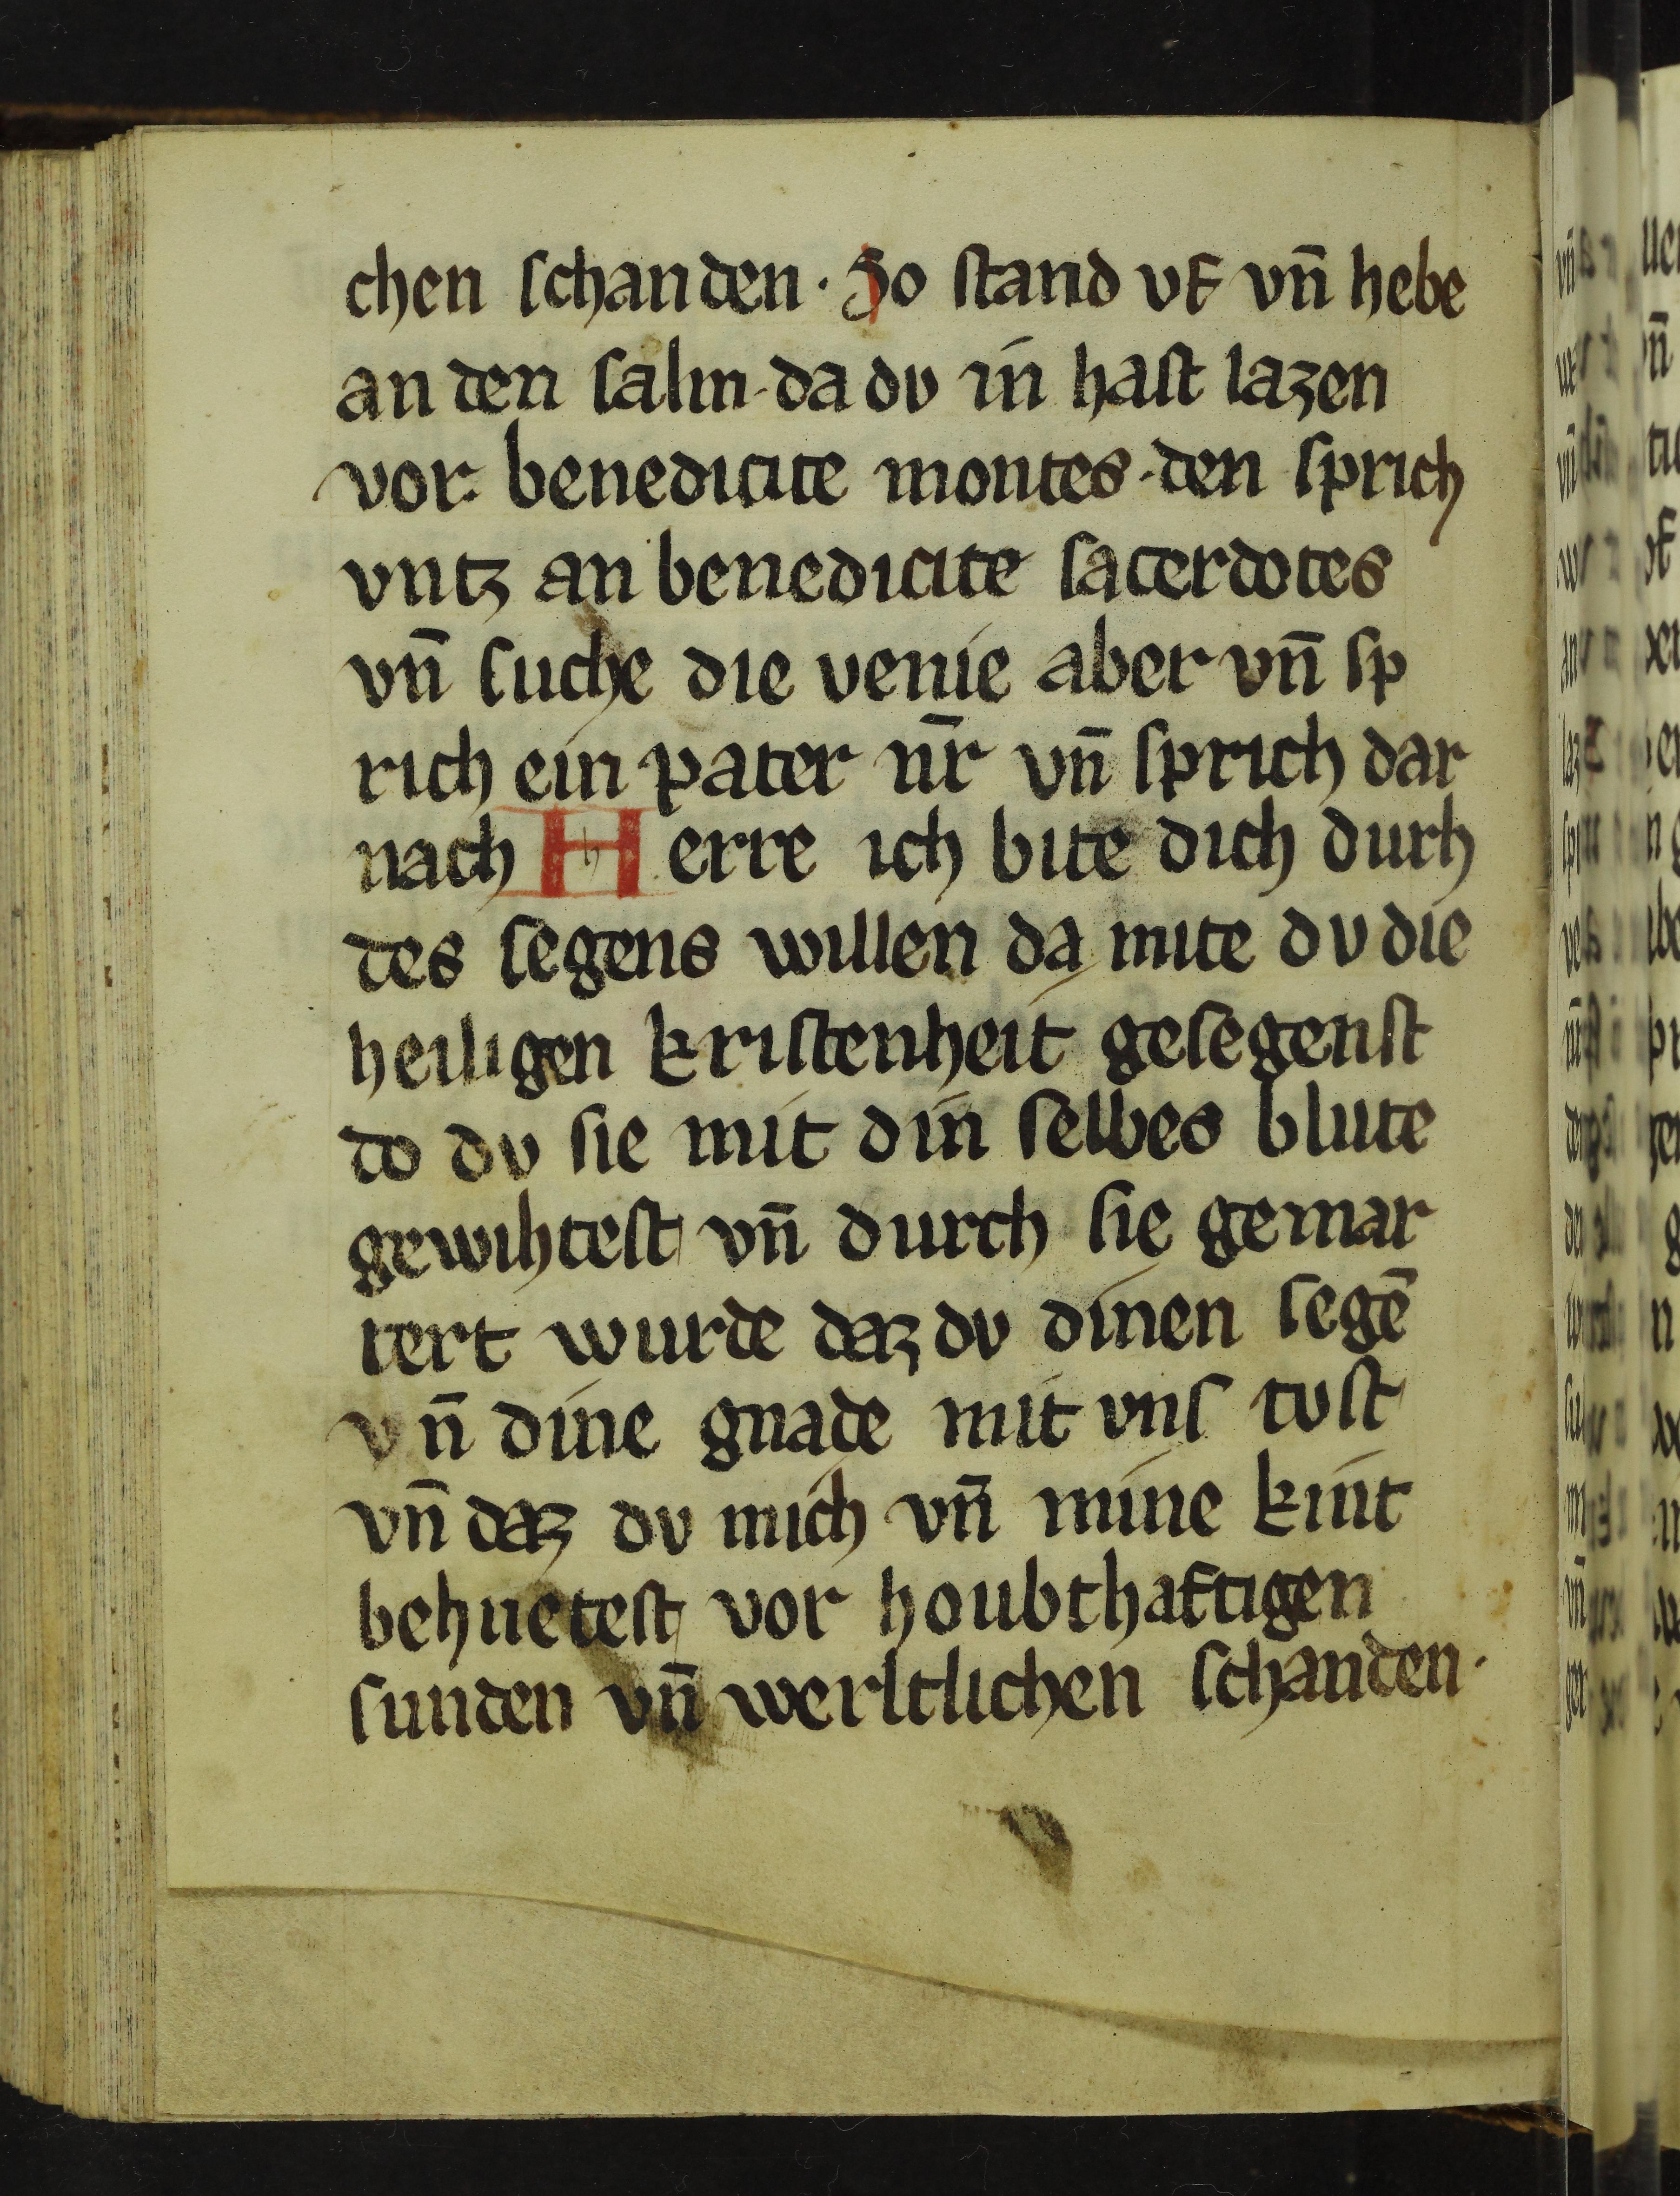 chen schanden · So stand vf vn̄ hebe
an den salm · da du in hast lazen
vor · benedicite montes · den sprich
vntz an benedicite sacerdotes
vn̄ suche die venie aber vn̄ sp
rich ein pater nr̄ vn̄ sprich dar
nach Herre ich bite dich durh
des segens willen da mite dv die
heiligen kristenheit gesegenst
do dv sie mit din selbes blute
gewihtest vn̄ durch sie gemar
tert wurde daz dv dinen segē
vn̄ dine gnade mit vns tvst
vn̄ daz dv mich vn̄ mine kint
behuetest vor houbthaftigen
sunden vn̄ werltlichen schanden ·